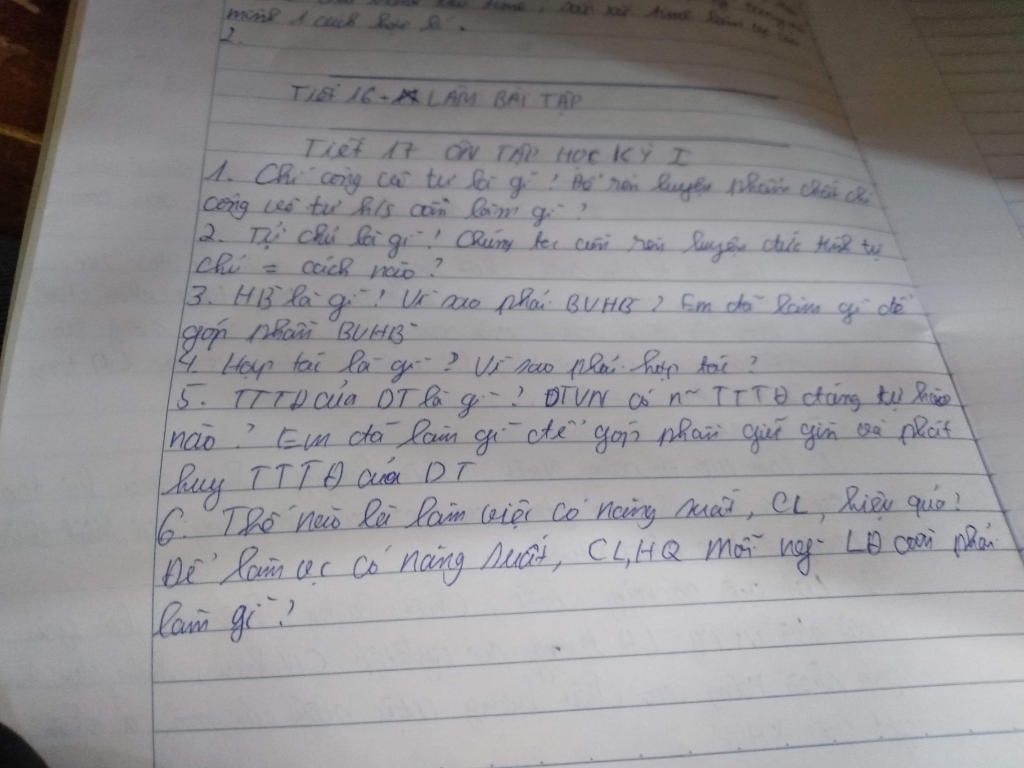 mình 1 cách hợp lí.
2.
Tiết 16. LÀM BÀI TẬP
Tiết 17 ÔN TẬP HỌC KỲ I
1. Chí công vô tư là gì? Để rèn luyện phẩm chất chí
công vô tư h/s cần làm gì?
2. Tự chủ là gì? Chúng ta cần rèn luyện đức tính tự
chủ = cách nào?
3. HB là gì? Vì sao phải BVHB? Em đã làm gì để
góp phần BVHB
4. Hợp tác là gì? Vì sao phải hợp tác?
5. TTTĐ của DT là gì? DTVN có n~ TTTĐ đáng tự hào
nào? Em đã làm gì để góp phần giữ gìn và phát
huy TTTĐ của DT
6. Thế nào là làm việc có năng suất, CL, hiệu quả?
Để làm vc có năng suất, CL, HQ mỗi ng LĐ cần phải
làm gì?